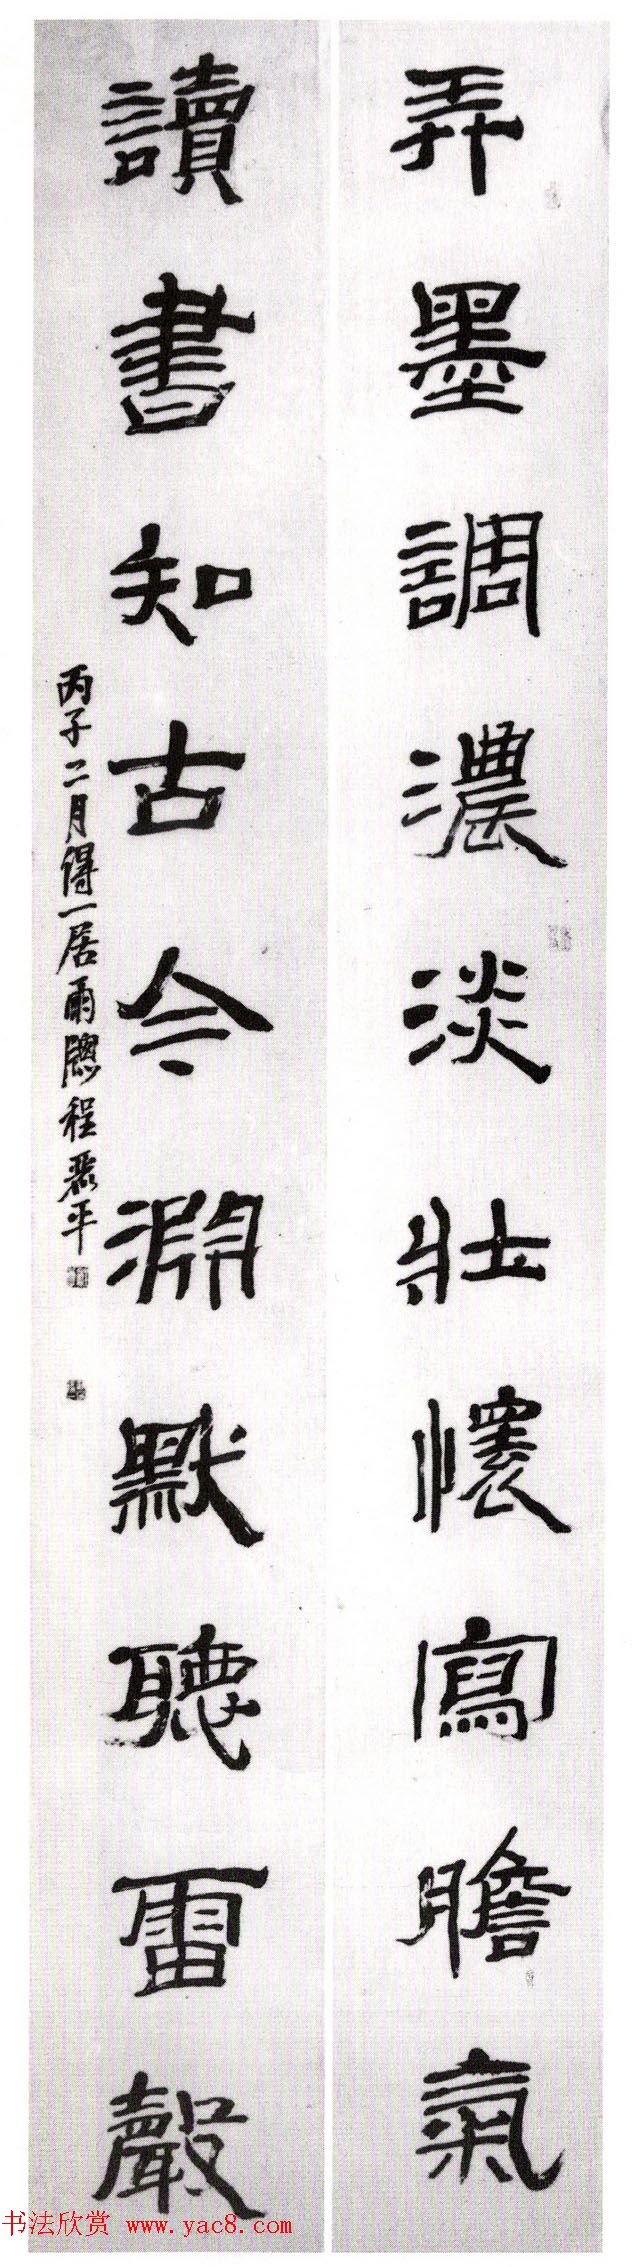 弄墨調濃淡壯懷寫膽氣
讀書知古今淵默聽雷聲
丙子二月得一居雨窗程景平
书法欣赏 www.yac8.com